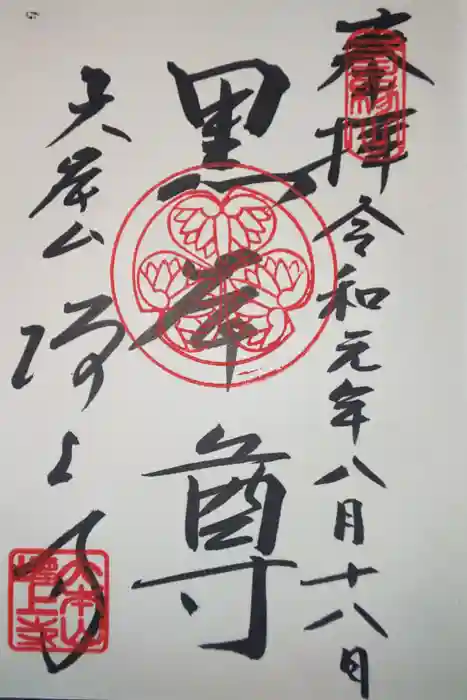 奉拝 令和元年八月十八日
黒本尊
大本山 増上寺
三縁山
大本山
増上寺